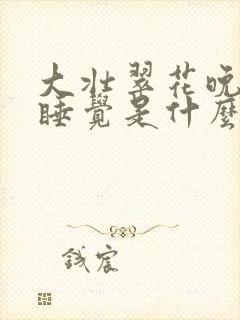 大壮翠花晚
睡覺是什麼
錢宸